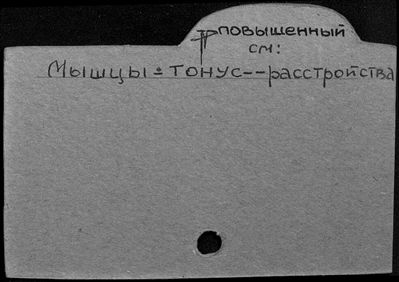 повышенный
см:
Мышцы = тонус -- расстройства